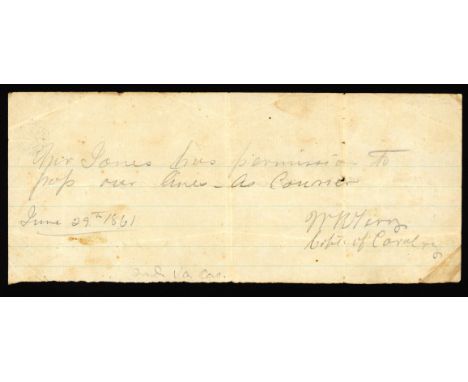 Mr Jones has permission to
pass our lines – As Courier
June 29th 1861
W R Terry
Capt. of Cavalry
2nd Va Cav.